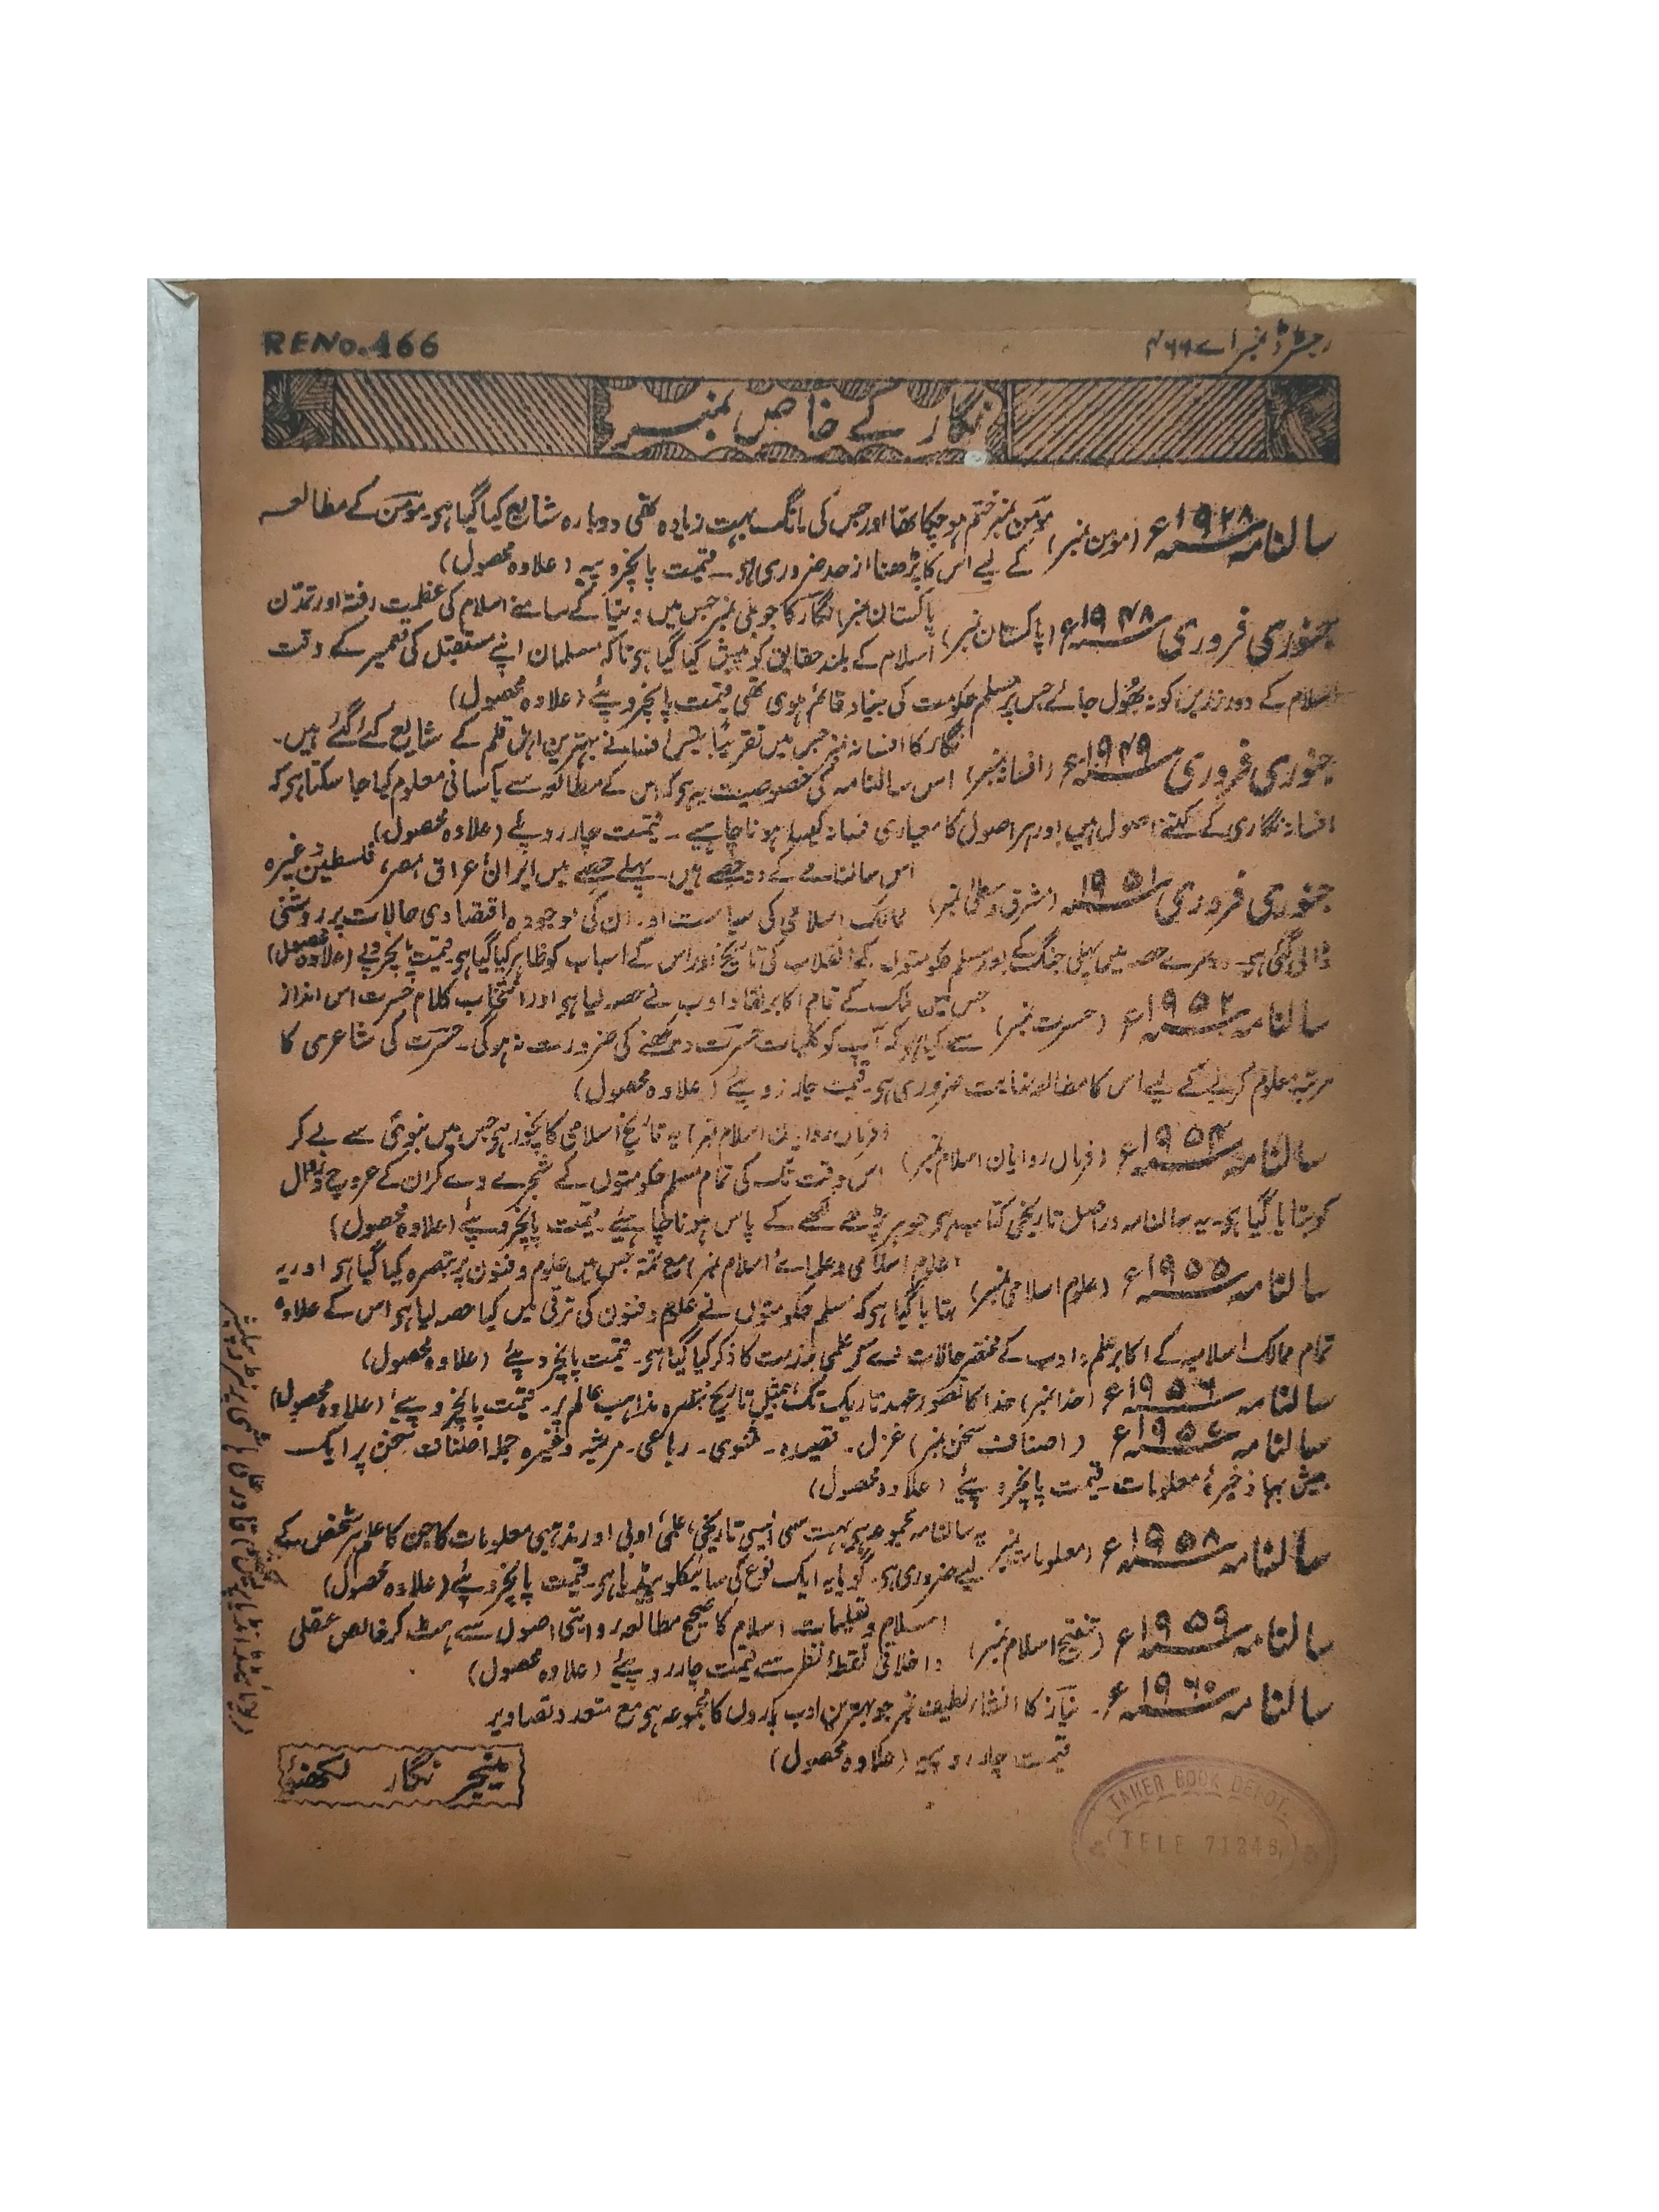 رجسٹرڈ نمبر اے ۴۶۶
RENo.466
نگار کے خاص نمبر
سالنامہ ۱۹۲۸ء (مومن نمبر) مومن نمبر ختم ہو چکا تھا اور جس کی مانگ بہت زیادہ تھی دوبارہ شایع کیا گیا ہو۔ مومن کے مطالعہ
کے لیے اس کا پڑھنا از حد ضروری ہو۔ قیمت پانچروپیہ (علاوہ محصول)
جنوری فروری ۱۹۴۸ء (پاکستان نمبر) پاکستان نمبر نگار کا جوبلی نمبر جس میں دنیا کے سامنے اسلام کی عظمت رفتہ اور تمدّن
اسلام کے بلند حقایق کو پیش کیا گیا ہو تاکہ مسلمان اپنے مستقبل کی تعمیر کے وقت
اسلام کے دور زریں کو نہ بھول جائے جس پر مسلم حکومت کی بنیاد قائم ہوی تھی قیمت پانچروپئے (علاوہ محصول)
جنوری فروری ۱۹۴۹ء (افسانہ نمبر) نگار کا افسانہ نمبر جس میں تقریباً بیس افسانے بہترین اہل قلم کے شایع کئے گئے ہیں۔
اس سالنامہ کی خصوصیت یہ ہو کہ اس کے مطالعہ سے بآسانی معلوم کیا جا سکتا ہو کہ
افسانہ نگاری کے کتنے اصول ہیں اور ہر اصول کا معیاری فسانہ کیسا ہونا چاہیے ۔ قیمت چار روپئے (علاوہ محصول)
جنوری فروری ۱۹۵۱ (مشرق وسطیٰ نمبر) اس سالنامے کے دو حصے ہیں۔ پہلے حصے میں ایران عراق مصر، فلسطین وغیرہ
ممالک اسلامی کی سیاست اور ان کی موجودہ اقتصادی حالات پر روشنی
ڈالی گئی ہو۔ دوسرے حصہ میں پہلی جنگ کے بعد مسلم حکومتوں کے انقلاب کی تاریخ اور اس کے اسباب کو ظاہر کیا گیا ہو۔ قیمت پانچروپے (علاوہ محصول)
سالنامہ ۱۹۵۲ء (حسرت نمبر) جس میں ملک کے تمام اکابر نقاد ادب نے حصہ لیا ہو اور انتخاب کلام حسرت اس انداز
سے کیا ہو کہ آپ کو کلیات حسرت دیکھنے کی ضرورت نہ ہوگی۔ حسرت کی شاعری کا
مرتبہ معلوم کرنے کے لیے اس کا مطالعہ نہایت ضروری ہو۔ قیمت چار روپیے (علاوہ محصول)
سالنامہ ۱۹۵۴ء (فرماں روایان اسلام نمبر) (فرماں روایان اسلام نمبر) یہ تاریخ اسلامی کا نچوڑ ہو جس میں نبوی سے لے کر
اس وقت تک کی تمام مسلم حکومتوں کے شجرے دے کر ان کے عروج و زوال
کو بتایا گیا ہو۔ یہ سالنامہ دراصل تاریخی کتاب ہو جو ہر پڑھے لکھے کے پاس ہونا چاہیئے۔ قیمت پانچروپئے (علاوہ محصول)
سالنامہ ۱۹۵۵ء (علوم اسلامی نمبر) (علوم اسلامی و علمائے اسلام نمبر) مع تتمہ جس میں علوم و فنون پر تبصرہ کیا گیا ہو اور یہ
بتایا گیا ہو کہ مسلم حکومتوں نے علوم و فنون کی ترقی میں کیا حصہ لیا ہو اس کے علاوہ
تمام ممالک اسلامیہ کے اکابر علم و ادب کے مختصر حالات مع علمی خدمت کا ذکر کیا گیا ہو۔ قیمت پانچروپئے (علاوہ محصول)
سالنامہ ۱۹۵۶ء (خدا نمبر) خدا کا تصور عہد تاریک تک تاریخ تبصرہ مذاہب عالم پر۔ قیمت پانچروپئے (علاوہ محصول)
سالنامہ ۱۹۵۷ء (اصناف سخن نمبر) غزل۔ قصیدہ۔ مثنوی۔ رباعی۔ مرثیہ وغیرہ جملہ اصناف سخن پر ایک
بیش بہا ذخیرۂ معلومات۔ قیمت پانچروپئے (علاوہ محصول)
سالنامہ ۱۹۵۸ء (معلومات نمبر) یہ سالنامہ مجموعہ ہو بہت سی ایسی تاریخی، علمی ادبی اور مذہبی معلومات کا جن کا علم ہر شخص کے
لیے ضروری ہو۔ گویا یہ ایک نوع کی سائیکلوپیڈیا ہو۔ قیمت پانچروپئے (علاوہ محصول)
سالنامہ ۱۹۵۹ء (تنقیح اسلام نمبر) اسلام و تعلیمات اسلام کا صحیح مطالعہ روایتی اصول سے ہٹ کر خالص عقلی
و اخلاقی نقطۂ نظر سے قیمت چار روپیئے (علاوہ محصول)
سالنامہ ۱۹۶۰ء۔ نیاز کا انشاء لطیف نمبر جو بہترین ادب پاروں کا مجموعہ ہو مع متعدد تصاویر
قیمت چار روپیہ (علاوہ محصول)
منیجر نگار لکھنؤ
TAHER BOOK DEPOT
TELE 71246